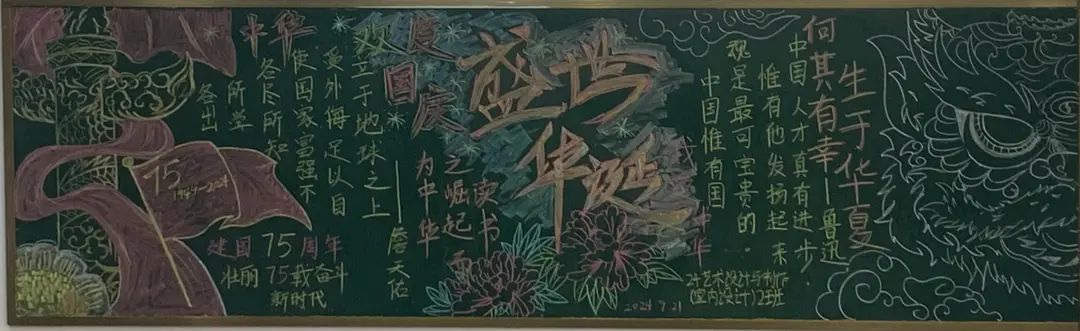 中华
各出
所学
各尽所知
使国家富强不
受外侮足以自
立于地球之上
——詹天佑
75
1949-2024
建国75周年
壮丽75载奋斗
新时代
欢度
国庆
盛世
华诞
为中华
之崛起而
读书
中华
中国惟有国
魂是最可宝贵的.
惟有他发扬起来
中国人才真有进步.
——鲁迅
何其有幸
生于华夏
24艺术设计与制作
(室内设计)2班
2024.9.21